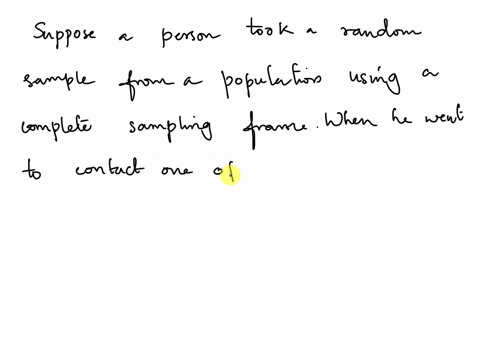 Suppose a person took a random
sample from a population using a
complete sampling frame. When he went
to contact one of